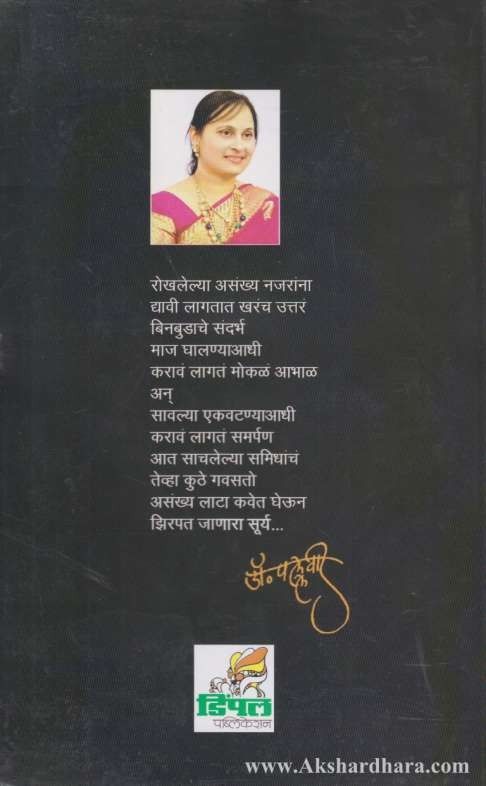 रोखलेल्या असंख्य नजरांना
द्यावी लागतात खरंच उत्तरं
बिनबुडाचे संदर्भ
माज घालण्याआधी
करावं लागतं मोकळं आभाळ
अन्
सावल्या एकवटण्याआधी
करावं लागतं समर्पण
आत साचलेल्या समिधांचं
तेव्हा कुठे गवसतो
असंख्य लाटा कवेत घेऊन
झिरपत जाणारा सूर्य...
डॉ. पल्लवी
डिंपल
पब्लिकेशन
www.Akshardhara.com